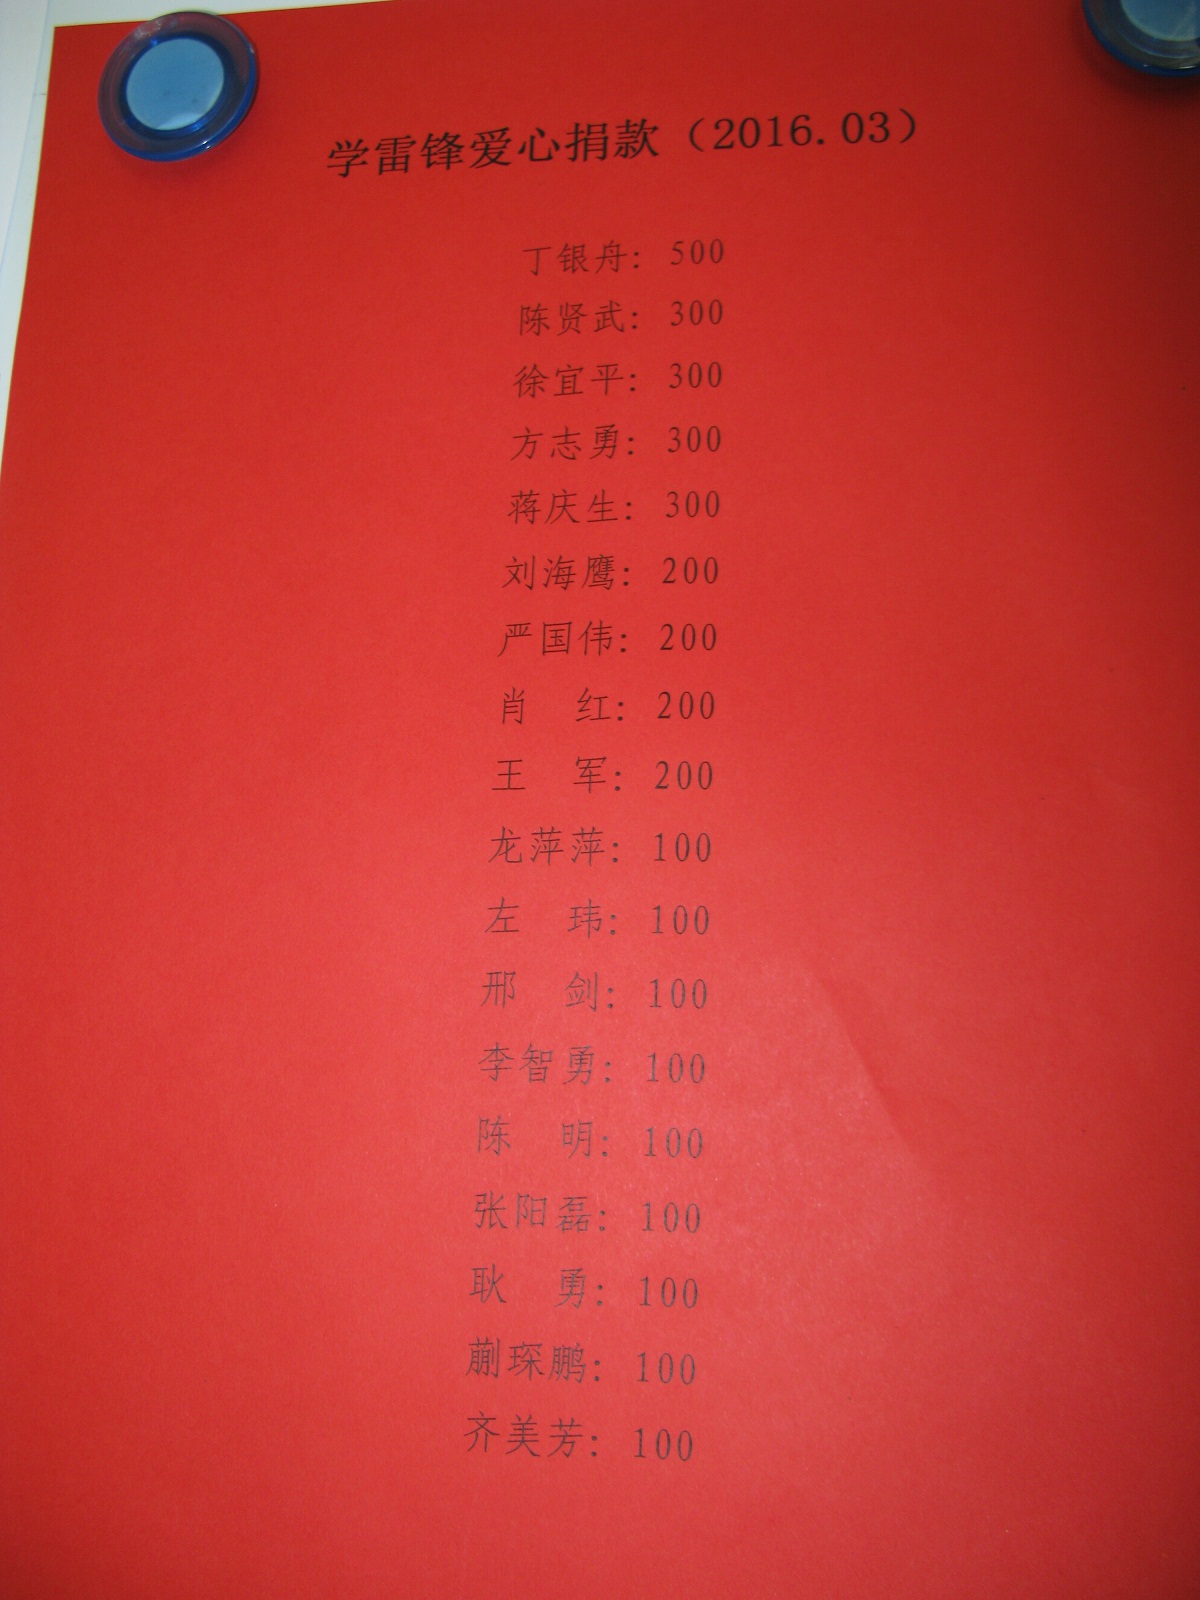 学雷锋爱心捐款（2016.03）
丁银舟：500
陈贤武：300
徐宜平：300
方志勇：300
蒋庆生：300
刘海鹰：200
严国伟：200
肖　红：200
王　军：200
龙萍萍：100
左　玮：100
邢　剑：100
李智勇：100
陈　明：100
张阳磊：100
耿　勇：100
蒯琛鹏：100
齐美芳：100